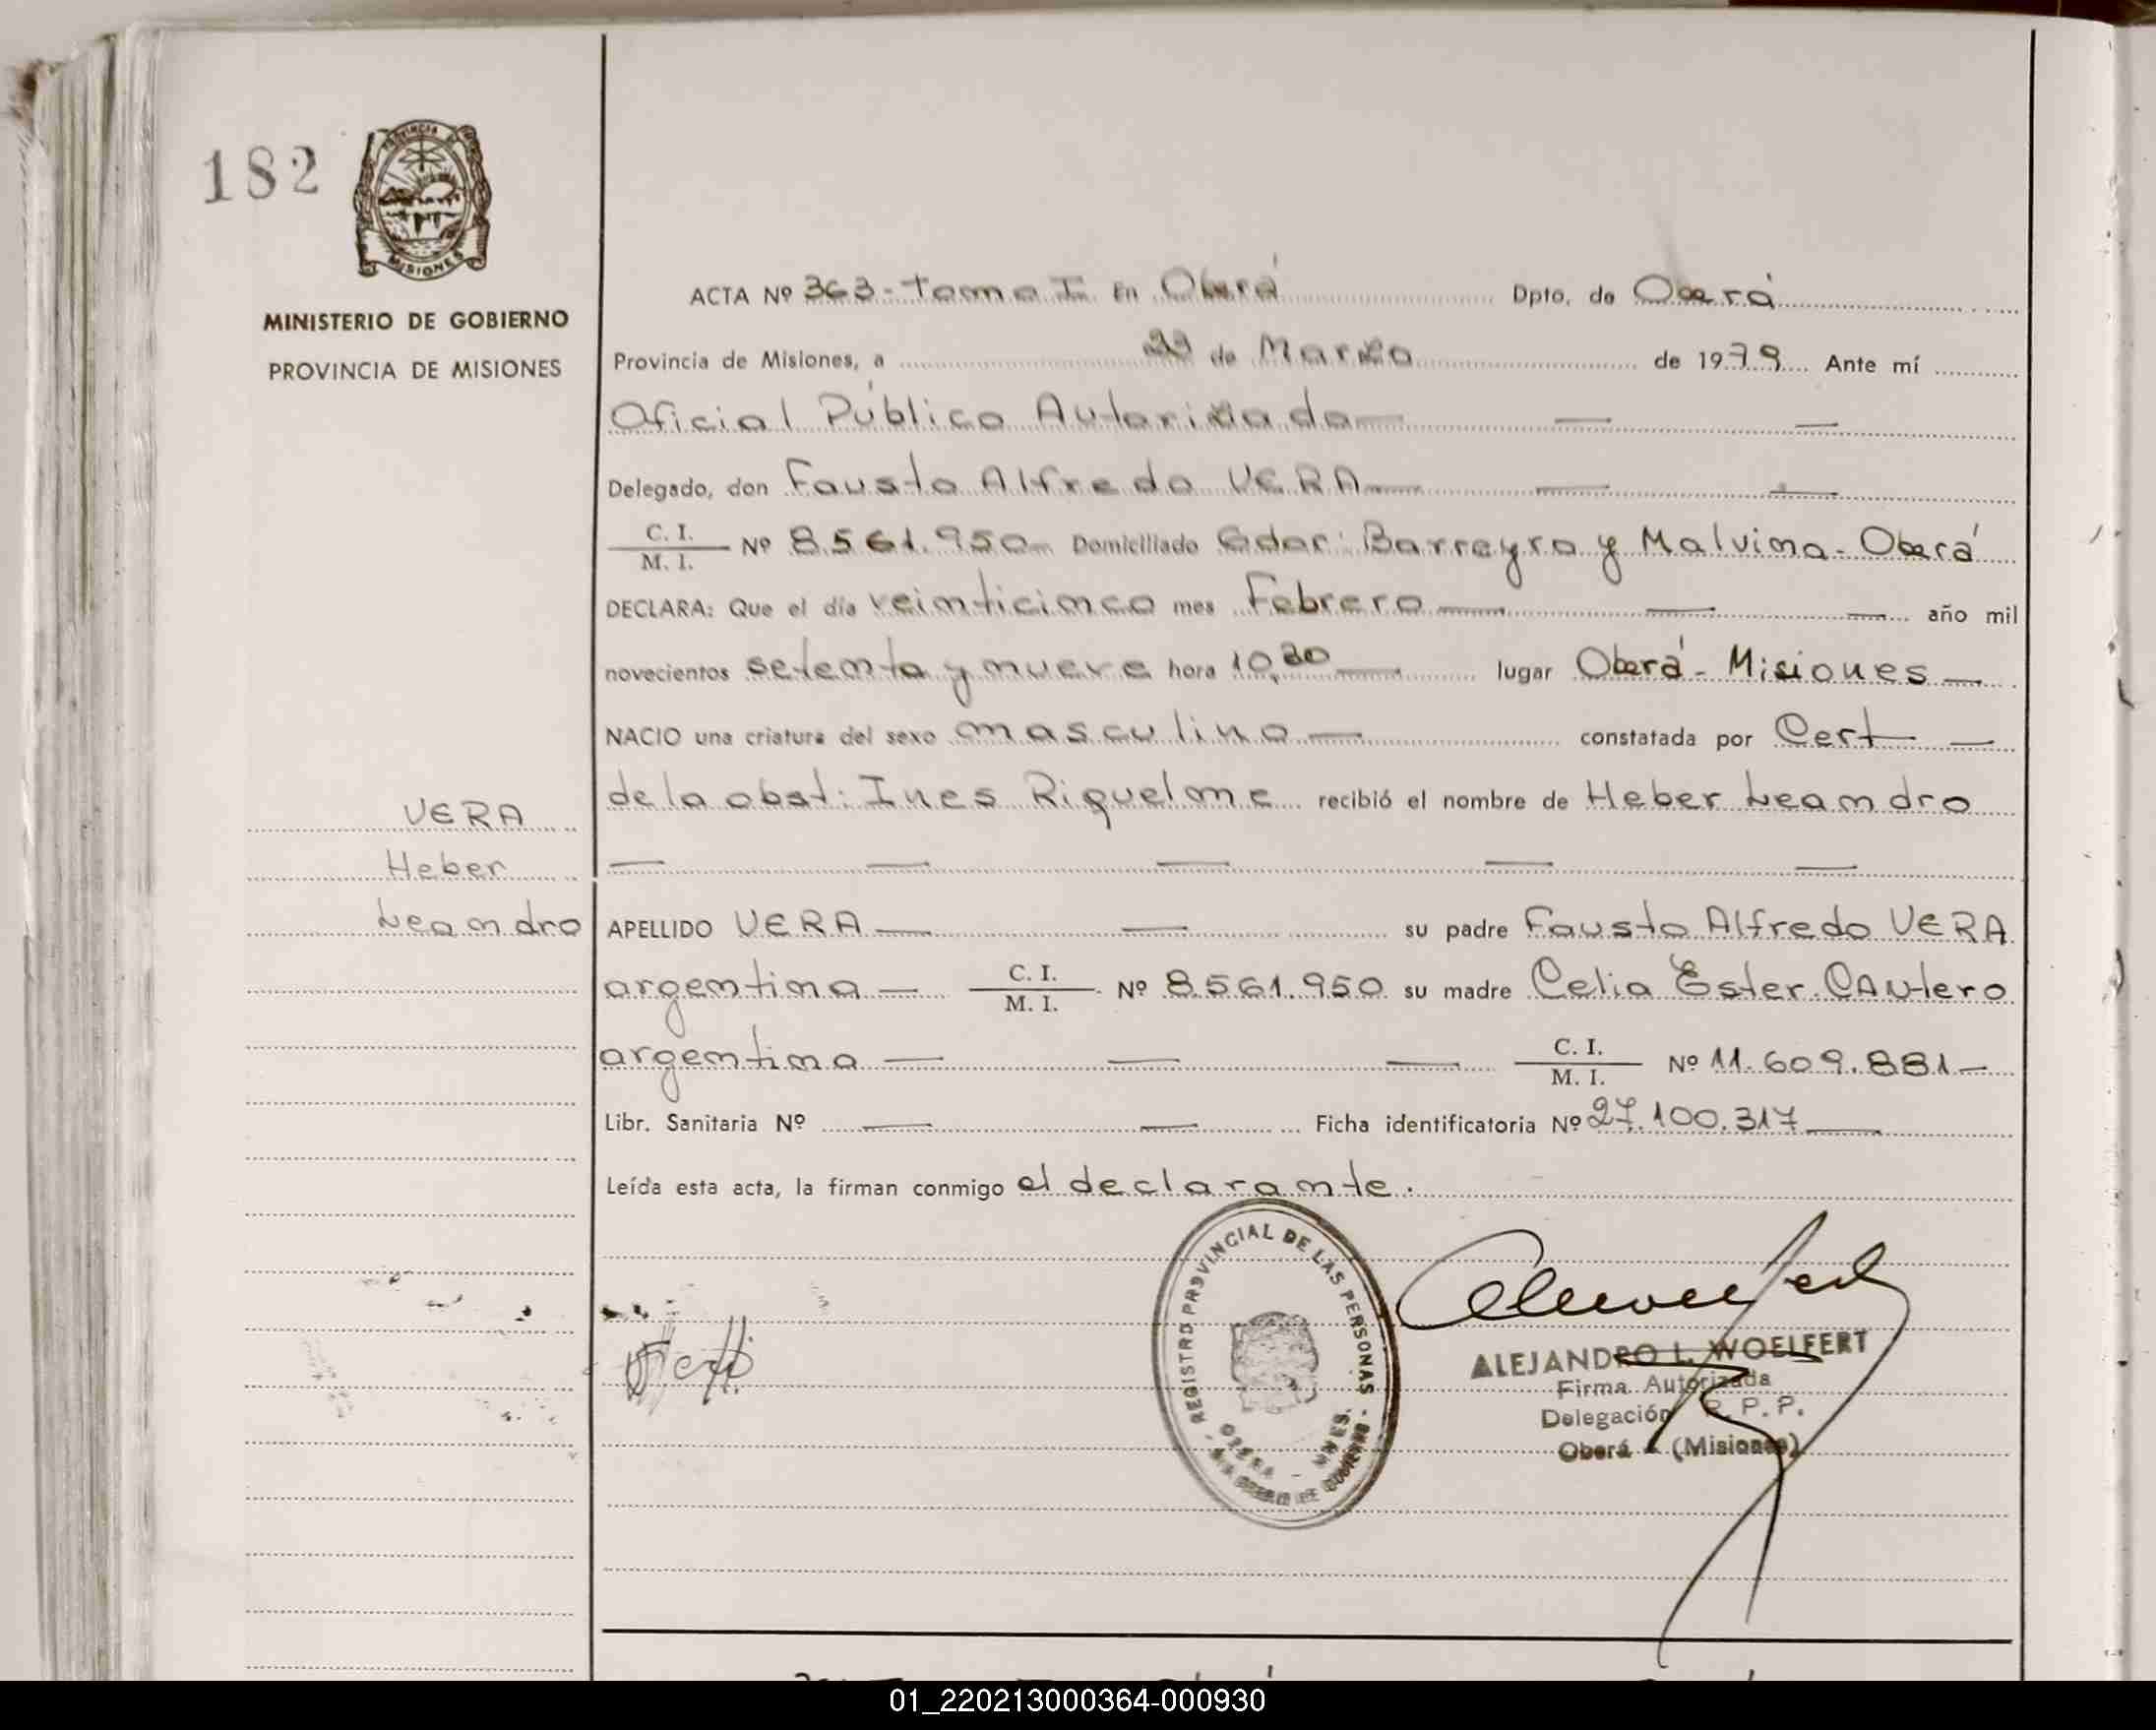 182
PROVINCIA DE
MISIONES
MINISTERIO DE GOBIERNO
PROVINCIA DE MISIONES
ACTA Nº 363-Tomo I En Oberá Dpto. de Oberá
Provincia de Misiones, a de Marzo de 1979 Ante mí
Oficial Público Autorizado
Delegado, don Fausto Alfredo VERA
C. I.
M. I. Nº 8.561.950 Domiciliado Gdor: Barreyro y Malvina - Oberá
DECLARA: Que el día veinticinco mes Febrero año mil
novecientos setenta y nueve hora 10,30 lugar Oberá - Misiones
NACIO una criatura del sexo masculino constatada por Cert
de la obst: Ines Riquelme recibió el nombre de Heber Leandro
VERA
Heber
Leandro
APELLIDO VERA su padre Fausto Alfredo VERA
argentina C. I.
M. I. Nº 8.561.950 su madre Celia Ester
argentina C. I.
M. I. Nº 11.609.881
Libr. Sanitaria Nº Ficha identificatoria Nº 27.100.317
Leída esta acta, la firman conmigo el declarante.
REGISTRO PROVINCIAL DE LAS PERSONAS
OBERA - MNES.
ALEJANDRO L. WOELFERT
Firma Autorizada
Delegación R. P. P.
Oberá - (Misiones)
01_220213000364-000930